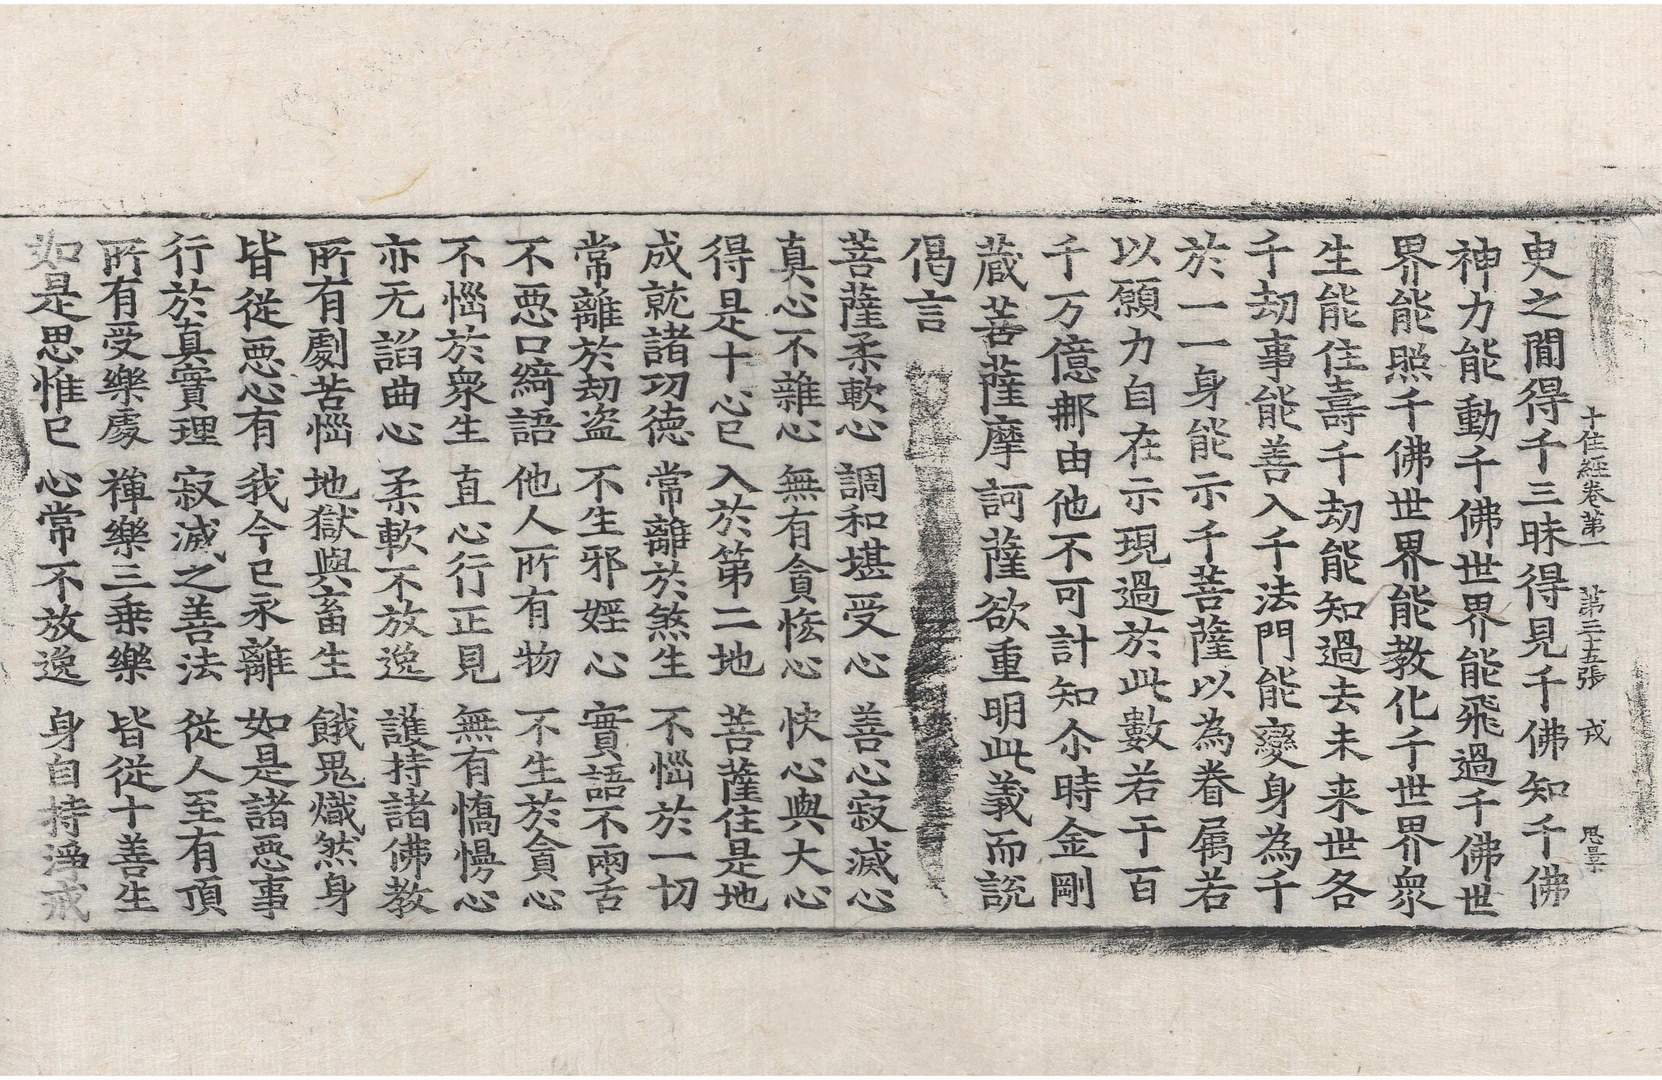 十住經卷第一 第三十五張 戎
臾之閒得千三昧得見千佛知千佛
神力能動千佛世界能飛過千佛世
界能照千佛世界能教化千世界衆
生能住壽千劫能知過去未来世各
千劫事能善入千法門能變身為千
於一一身能示千菩薩以為眷属若
以願力自在示現過於此數若干百
千万億那由他不可計知尒時金剛
蔵菩薩摩訶薩欲重明此義而說
偈言
菩薩柔軟心 調和堪受心 善心寂滅心
真心不雜心 無有貪恡心 快心與大心
得是十心已 入於第二地 菩薩住是地
成就諸功德 常離於煞生 不惱於一切
常離於劫盗 不生邪婬心 實語不兩舌
不惡口綺語 他人所有物 不生於貪心
不惱於衆生 直心行正見 無有憍慢心
亦无諂曲心 柔軟不放逸 護持諸佛教
所有劇苦惱 地獄與畜生 餓鬼熾然身
皆從惡心有 我今已永離 如是諸惡事
行於真實理 寂滅之善法 從人至有頂
所有受樂處 禪樂三乗樂 皆從十善生
如是思惟已 心常不放逸 身自持淨戒